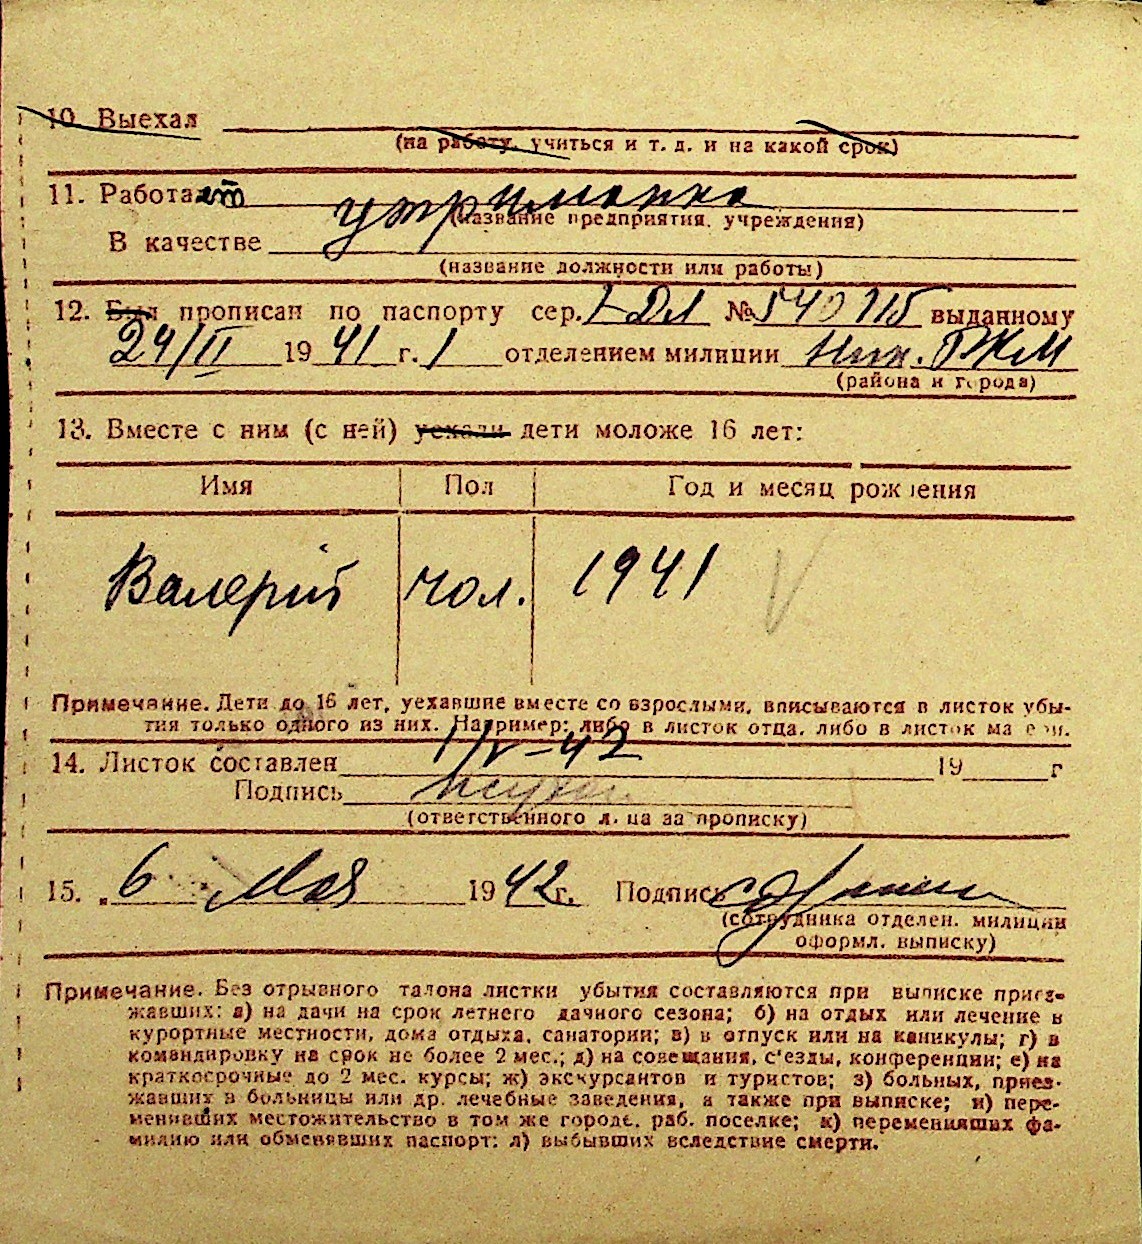 10. Выехал
(на работу, учиться и т. д. и на какой срок)
11. Работает утриманка
(название предприятия, учреждения)
В качестве
(название должности или работы)
12. Был прописан по паспорту сер. I-ДЛ № 540715 выданному
24/II 1941 г. 1 отделением милиции Ник. РКМ
(района и города)
13. Вместе с ним (с ней) уехали дети моложе 16 лет:
Имя Пол Год и месяц рождения
Валерий чол. 1941
Примечание. Дети до 16 лет, уехавшие вместе со взрослыми, вписываются в листок убы-
тия только одного из них. Например: либо в листок отца, либо в листок матери.
14. Листок составлен 1/V-42 19 г
Подпись
(ответственного лица за прописку)
15. „ 6 Мая 1942 г. Подпись
(сотрудника отделен. милиции
оформл. выписку)
Примечание. Без отрывного талона листки убытия составляются при выписке приез-
жавших: а) на дачи на срок летнего дачного сезона; б) на отдых или лечение в
курортные местности, дома отдыха, санатории; в) в отпуск или на каникулы; г) в
командировку на срок не более 2 мес.; д) на совещания, с'езды, конференции; е) на
краткосрочные до 2 мес. курсы; ж) экскурсантов и туристов; з) больных, приез-
жавших в больницы или др. лечебные заведения, а также при выписке; и) пере-
менивших местожительство в том же городе, раб. поселке; к) переменивших фа-
милию или обменявших паспорт; л) выбывших вследствие смерти.